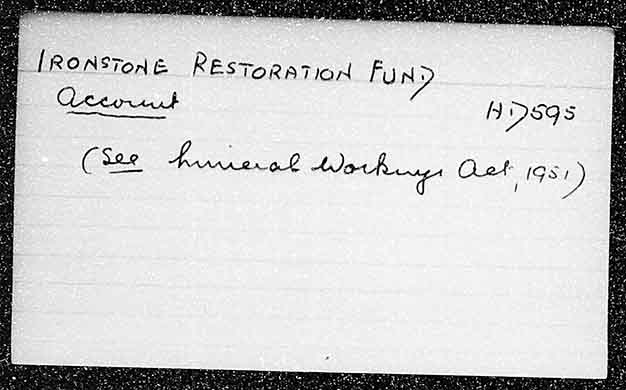 IRONSTONE RESTORATION FUND
Account HD595
(See Mineral Workings Act, 1951)